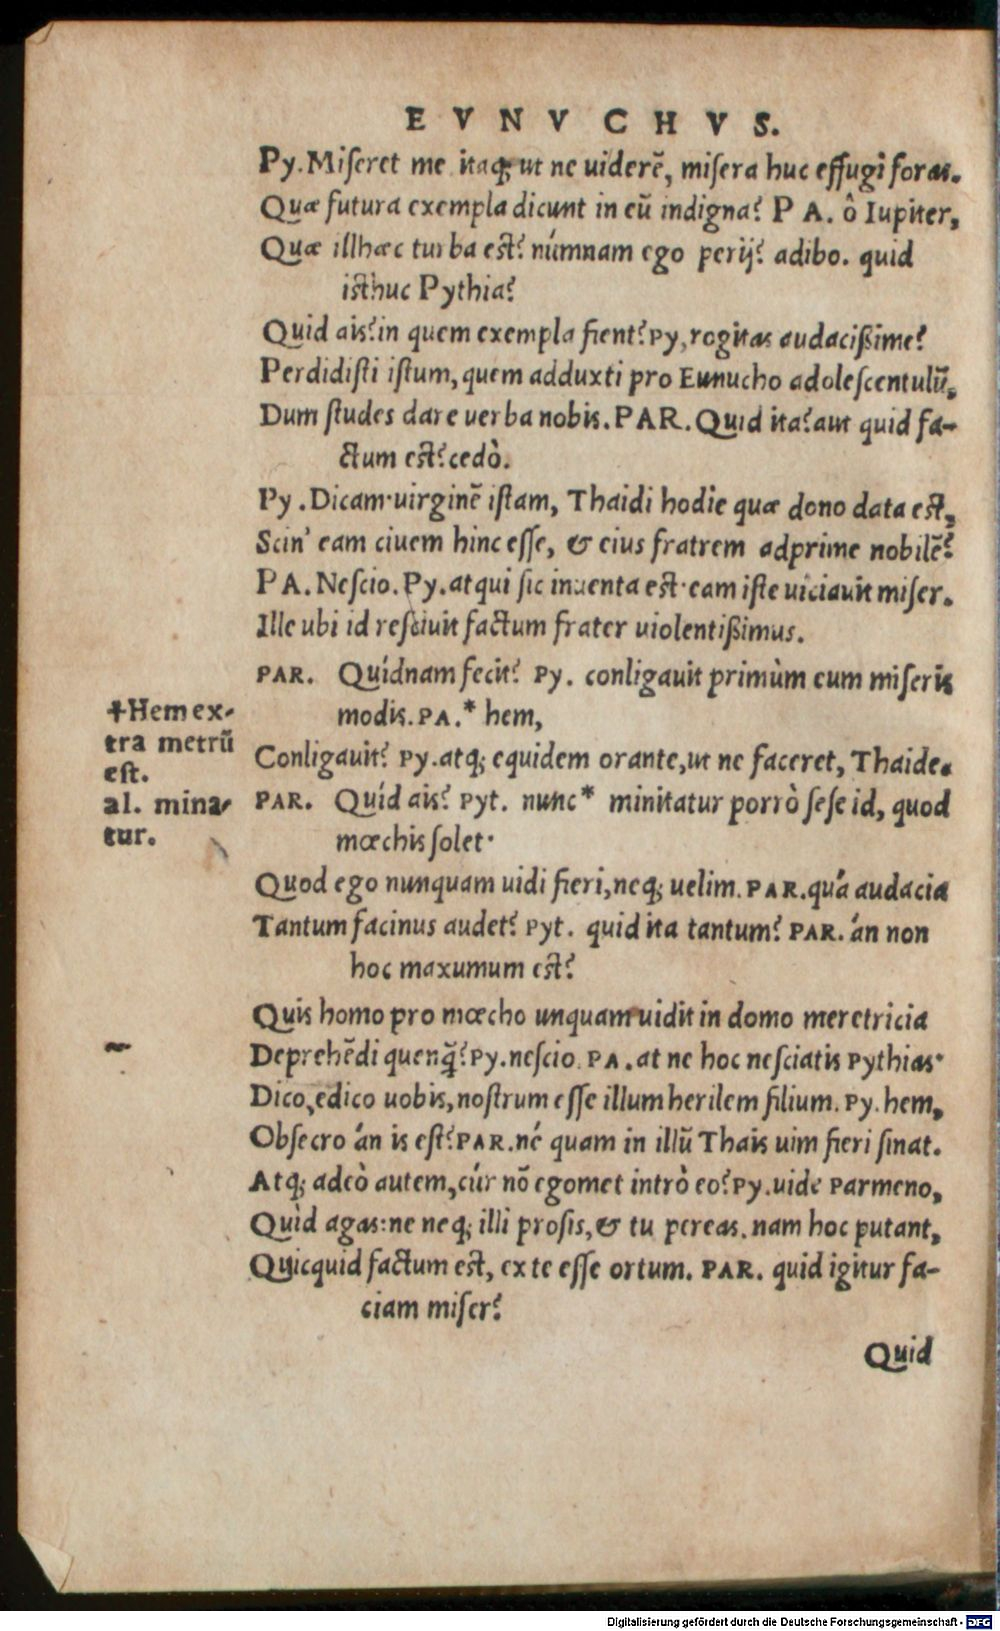 EVNVCHVS.
Py. Miſeret me itaq; ut ne uiderē, miſera huc effugi foras.
Quæ futura exempla dicunt in eū indigna? PA. ô Iupiter,
Quæ illhæc turba eſt? númnam ego perij? adibo. quid
iſthuc Pythia?
Quid ais? in quem exempla fient? Py, rogitas audacißime?
Perdidiſti iſtum, quem adduxti pro Eunucho adoleſcentulū,
Dum ſtudes dare uerba nobis. PAR. Quid ita? aut quid fa-
ctum eſt? cedò.
Py. Dicam· uirginē iſtam, Thaidi hodie quæ dono data eſt,
Scin' eam ciuem hinc eſſe, & eius fratrem adprime nobilē?
PA. Neſcio. Py. atqui ſic inuenta eſt· eam iſte uiciauit miſer.
Ille ubi id reſciuit factum frater uiolentißimus.
PAR. Quídnam fecit? Py. conligauit primùm eum miſeris
modis. PA.* hem,
Conligauit? Py. atq; equidem orante, ut ne faceret, Thaide.
PAR. Quíd ais? Pyt. nunc* minitatur porrò ſeſe id, quod
mœchis ſolet·
Quod ego nunquam uidi fieri, neq; uelim. PAR. quá audacia
Tantum facinus audet? Pyt. quid ita tantum? PAR. án non
hoc maxumum eſt?
Quis homo pro mœcho unquam uidit in domo meretricia
Deprehēdi quenq̃? Py. neſcio. PA. at ne hoc neſciatis Pythias·
Dico, edico uobis, noſtrum eſſe illum herilem filium. Py. hem,
Obſecro án is eſt? PAR. né quam in illū Thais uim fieri ſinat.
Atq; adeò autem, cúr nō egomet intrò eo? Py. uide Parmeno,
Quid agas: ne neq; illi proſis, & tu pereas. nam hoc putant,
Quicquid factum eſt, ex te eſſe ortum. PAR. quid igitur fa-
ciam miſer?
Quid
✝Hem ex-
tra metrū
eſt.
al. mina-
tur.
Digitalisierung gefördert durch die Deutsche Forschungsgemeinschaft - DFG